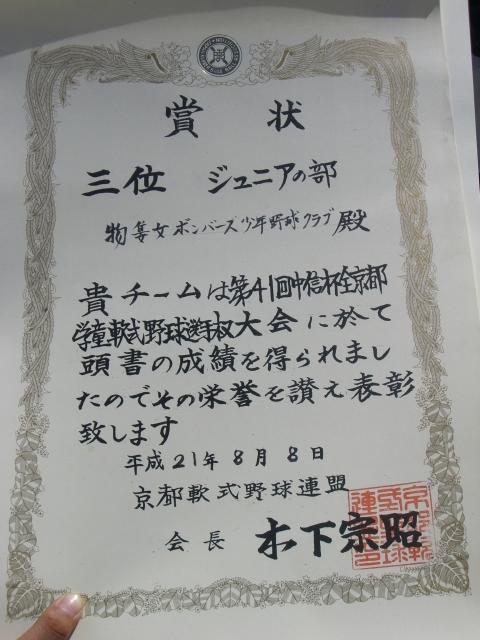 賞状
三位 ジュニアの部
物集女ボンバーズ少年野球クラブ殿
貴チームは第41回中信杯全京都
学童軟式野球選手权大会に於て
頭書の成績を得られまし
たのでその栄誉を讃え表彰
致します
平成21年8月8日
京都軟式野球連盟
会長 木下宗昭